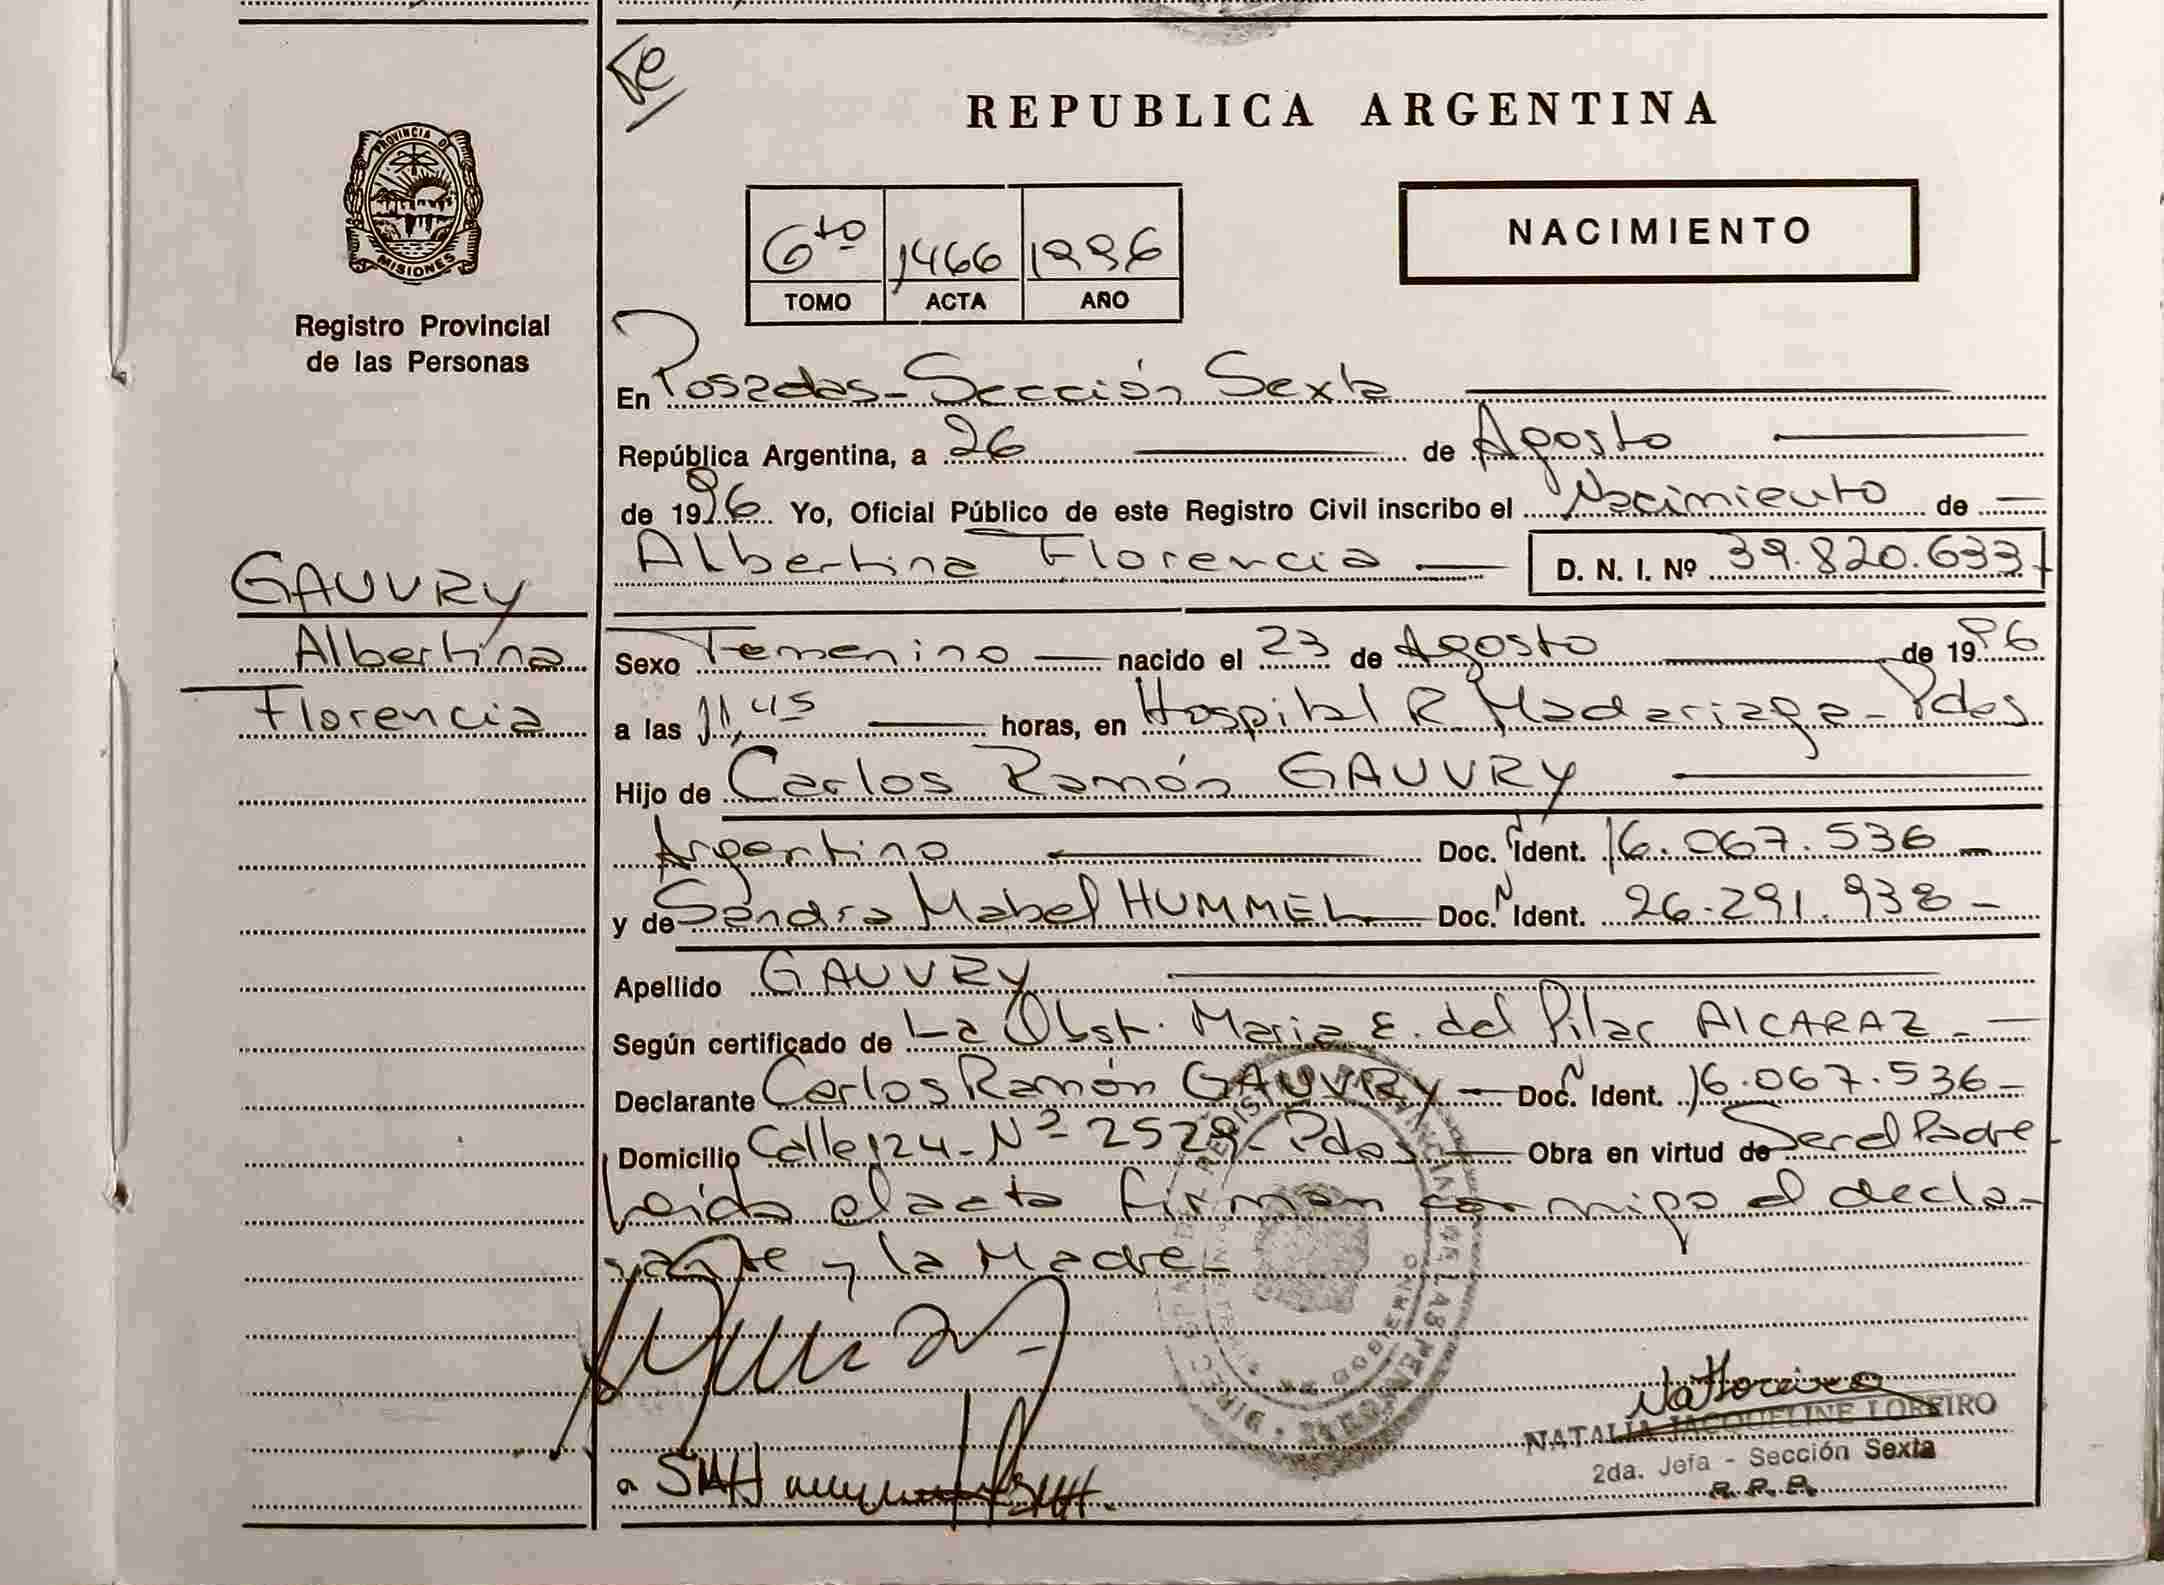 REPUBLICA ARGENTINA
PROVINCIA DE
MISIONES
Registro Provincial
de las Personas
6to 1466 1996
TOMO ACTA AÑO
NACIMIENTO
En Posadas - Sección Sexta
República Argentina, a 26 de Agosto
de 1996 Yo, Oficial Público de este Registro Civil inscribo el Nacimiento de
Albertina Florencia D. N. I. Nº 39.820.633
GAUVRY
Albertina
Florencia
Sexo Femenino nacido el 23 de Agosto de 1996
a las 11,45 horas, en Hospital R Madariaga - Pdas
Hijo de Carlos Ramón GAUVRY
Argentino Doc. Ident. 16.067.536
y de Sandra Mabel HUMMEL Doc. Ident. 26.291.938
Apellido GAUVRY
Según certificado de La Obst. Maria E. del Pilar ALCARAZ
Declarante Carlos Ramón GAUVRY Doc. Ident. 16.067.536
Domicilio Calle 124 - Nº 2529 - Pdas Obra en virtud de Ser el Padre
Leida el acta firman conmigo el decla-
rante y la Madre
NATALIA JACQUELINE LOREIRO
2da. Jefa - Sección Sexta
R.P.P.